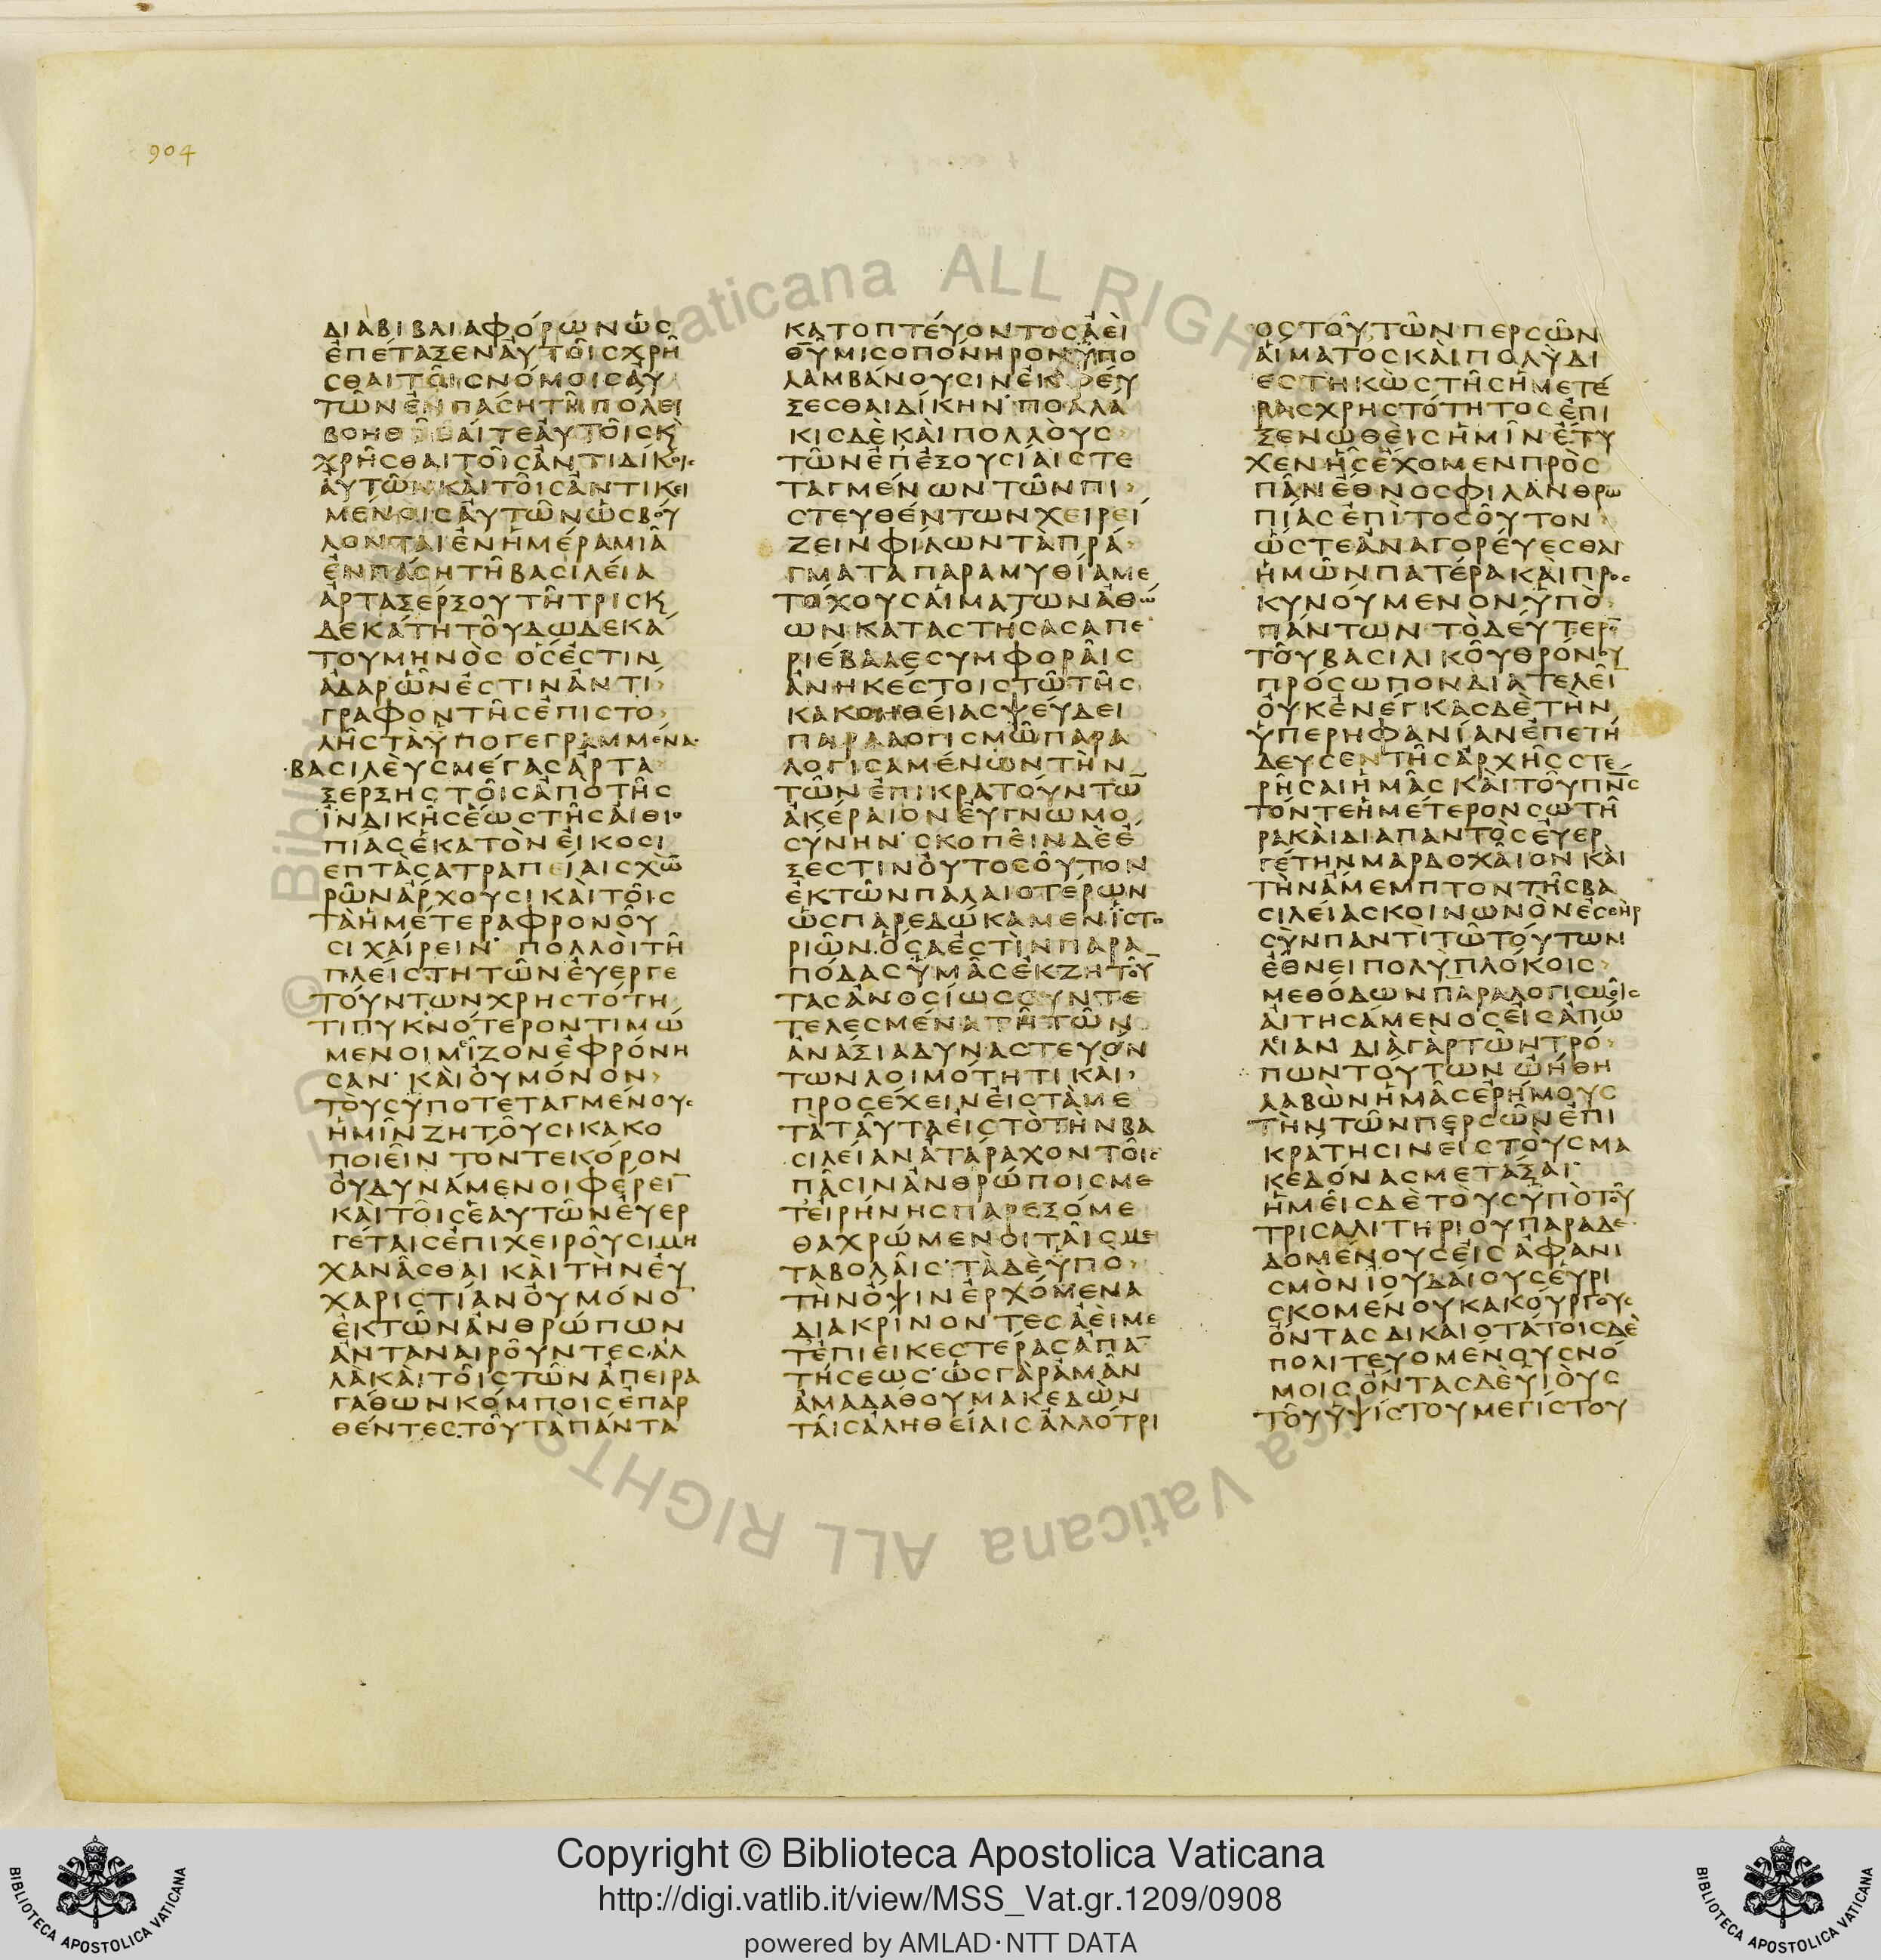 904
ΔΙΑΒΙΒΛΙΑΦΟΡΩΝΩΣ
ΕΠΕΤΑΞΕΝΑΥΤΟΙΣΧΡΗ
ΣΘΑΙΤΟΙΣΝΟΜΟΙΣΑΥ
ΤΩΝΕΝΠΑΣΗΤΗΠΟΛΕΙ
ΒΟΗΘΗΣΑΙΤΕΑΥΤΟΙΣΚ
ΧΡΗΣΘΑΙΤΟΙΣΑΝΤΙΔΙΚΟΙΣ
ΑΥΤΩΝΚΑΙΤΟΙΣΑΝΤΙΚΕΙ
ΜΕΝΟΙΣΑΥΤΩΝΩΣΒΟΥ
ΛΟΝΤΑΙΕΝΗΜΕΡΑΜΙΑ
ΕΝΠΑΣΗΤΗΒΑΣΙΛΕΙΑ
ΑΡΤΑΞΕΡΞΟΥΤΗΤΡΙΣΚ
ΔΕΚΑΤΗΤΟΥΔΩΔΕΚΑ
ΤΟΥΜΗΝΟΣΟΣΕΣΤΙΝ
ΑΔΑΡΩΝΕΣΤΙΝΑΝΤΙ
ΓΡΑΦΟΝΤΗΣΕΠΙΣΤΟ
ΛΗΣΤΑΥΠΟΓΕΓΡΑΜΜΕΝΑ
ΒΑΣΙΛΕΥΣΜΕΓΑΣΑΡΤΑ
ΞΕΡΞΗΣΤΟΙΣΑΠΟΤΗΣ
ΙΝΔΙΚΗΣΕΩΣΤΗΣΑΙΘΙΟ
ΠΙΑΣΕΚΑΤΟΝΕΙΚΟΣΙ
ΕΠΤΑΣΑΤΡΑΠΕΙΑΙΣΧΩ
ΡΩΝΑΡΧΟΥΣΙΚΑΙΤΟΙΣ
ΤΑΗΜΕΤΕΡΑΦΡΟΝΟΥ
ΣΙΧΑΙΡΕΙΝ· ΠΟΛΛΟΙΤΗ
ΠΛΕΙΣΤΗΤΩΝΕΥΕΡΓΕ
ΤΟΥΝΤΩΝΧΡΗΣΤΟΤΗ
ΤΙΠΥΚΝΟΤΕΡΟΝΤΙΜΩ
ΜΕΝΟΙΜΕΙΖΟΝΕΦΡΟΝΗ
ΣΑΝ· ΚΑΙΟΥΜΟΝΟΝ
ΤΟΥΣΥΠΟΤΕΤΑΓΜΕΝΟΥΣ
ΗΜΙΝΖΗΤΟΥΣΙΚΑΚΟ
ΠΟΙΕΙΝΤΟΝΤΕΚΟΡΟΝ
ΟΥΔΥΝΑΜΕΝΟΙΦΕΡΕΙ¯
ΚΑΙΤΟΙΣΕΑΥΤΩΝΕΥΕΡ
ΓΕΤΑΙΣΕΠΙΧΕΙΡΟΥΣΙΜΗ
ΧΑΝΑΣΘΑΙΚΑΙΤΗΝΕΥ
ΧΑΡΙΣΤΙΑΝΟΥΜΟΝΟ¯
ΕΚΤΩΝΑΝΘΡΩΠΩΝ
ΑΝΤΑΝΑΙΡΟΥΝΤΕΣΑΛ
ΛΑΚΑΙΤΟΙΣΤΩΝΑΠΕΙΡΑ
ΓΑΘΩΝΚΟΜΠΟΙΣΕΠΑΡ
ΘΕΝΤΕΣΤΟΥΤΑΠΑΝΤΑ
ΚΑΤΟΠΤΕΥΟΝΤΟΣΑΕΙ
Θ¯ΥΜΙΣΟΠΟΝΗΡΟΝΥΠΟ
ΛΑΜΒΑΝΟΥΣΙΝΕΚΦΕΥ
ΞΕΣΘΑΙΔΙΚΗΝ· ΠΟΛΛΑ
ΚΙΣΔΕΚΑΙΠΟΛΛΟΥΣ
ΤΩΝΕΠΕΞΟΥΣΙΑΙΣΤΕ
ΤΑΓΜΕΝΩΝΤΩΝΠΙ
ΣΤΕΥΘΕΝΤΩΝΧΕΙΡΕΙ
ΖΕΙΝΦΙΛΩΝΤΑΠΡΑ
ΓΜΑΤΑΠΑΡΑΜΥΘΙΑΜΕ
ΤΟΧΟΥΣΑΙΜΑΤΩΝΑΘΩ
ΩΝΚΑΤΑΣΤΗΣΑΣΑΠΕ
ΡΙΕΒΑΛΕΣΥΜΦΟΡΑΙΣ
ΑΝΗΚΕΣΤΟΙΣΤΩΤΗΣ
ΚΑΚΟΗΘΕΙΑΣΨΕΥΔΕΙ
ΠΑΡΑΛΟΓΙΣΜΩΠΑΡΑ
ΛΟΓΙΣΑΜΕΝΩΝΤΗΝ
ΤΩΝΕΠΙΚΡΑΤΟΥΝΤΩ¯
ΑΚΕΡΑΙΟΝΕΥΓΝΩΜΟ
ΣΥΝΗΝ· ΣΚΟΠΕΙΝΔΕΕ
ΞΕΣΤΙΝΟΥΤΟΣΟΥΤΟΝ
ΕΚΤΩΝΠΑΛΑΙΟΤΕΡΩΝ
ΩΣΠΑΡΕΔΩΚΑΜΕΝΙΣΤΟ
ΡΙΩΝ.ΟΣΑΕΣΤΙΝΠΑΡΑ
ΠΟΔΑΣΥΜΑΣΕΚΖΗΤΟΥ¯
ΤΑΣΑΝΟΣΙΩΣΣΥΝΤΕ
ΤΕΛΕΣΜΕΝΑΤΗΤΩΝ
ΑΝΑΞΙΑΔΥΝΑΣΤΕΥΟΝ
ΤΩΝΛΟΙΜΟΤΗΤΙΚΑΙ
ΠΡΟΣΕΧΕΙΝΕΙΣΤΑΜΕ
ΤΑΤΑΥΤΑΕΙΣΤΟΤΗΝΒΑ
ΣΙΛΕΙΑΝΑΤΑΡΑΧΟΝΤΟΙΣ
ΠΑΣΙΝΑΝΘΡΩΠΟΙΣΜΕ
ΤΕΙΡΗΝΗΣΠΑΡΕΞΟΜΕ
ΘΑΧΡΩΜΕΝΟΙΤΑΙΣΜΕ
ΤΑΒΟΛΑΙΣ· ΤΑΔΕΥΠΟ
ΤΗΝΟΨΙΝΕΡΧΟΜΕΝΑ
ΔΙΑΚΡΙΝΟΝΤΕΣΑΕΙΜΕ
ΤΕΠΙΕΙΚΕΣΤΕΡΑΣΑΠΑ¯
ΤΗΣΕΩΣ· ΩΣΓΑΡΑΜΑΝ
ΑΜΑΔΑΘΟΥΜΑΚΕΔΩΝ
ΤΑΙΣΑΛΗΘΕΙΑΙΣΑΛΛΟΤΡΙ
ΟΣΤΟΥΤΩΝΠΕΡΣΩΝ
ΑΙΜΑΤΟΣΚΑΙΠΟΛΥΔΙ
ΕΣΤΗΚΩΣΤΗΣΗΜΕΤΕ
ΡΑΣΧΡΗΣΤΟΤΗΤΟΣΕΠΙ
ΞΕΝΩΘΕΙΣΗΜΙΝΕΤΥ
ΧΕΝΗΣΕΧΟΜΕΝΠΡΟΣ
ΠΑΝΕΘΝΟΣΦΙΛΑΝΘΡΩ
ΠΙΑΣΕΠΙΤΟΣΟΥΤΟΝ
ΩΣΤΕΑΝΑΓΟΡΕΥΕΣΘΑΙ
ΗΜΩΝΠΑΤΕΡΑΚΑΙΠΡΟΣ
ΚΥΝΟΥΜΕΝΟΝΥΠΟ
ΠΑΝΤΩΝΤΟΔΕΥΤΕΡΟ¯
ΤΟΥΒΑΣΙΛΙΚΟΥΘΡΟΝΟΥ
ΠΡΟΣΩΠΟΝΔΙΑΤΕΛΕΙ¯
ΟΥΚΕΝΕΓΚΑΣΔΕΤΗΝ
ΥΠΕΡΗΦΑΝΙΑΝΕΠΕΤΗ
ΔΕΥΣΕΝΤΗΣΑΡΧΗΣΣΤΕ
ΡΗΣΑΙΗΜΑΣΚΑΙΤΟΥΠΝΣ
ΤΟΝΤΕΗΜΕΤΕΡΟΝΣΩΤΗ
ΡΑΚΑΙΔΙΑΠΑΝΤΟΣΕΥΕΡ
ΓΕΤΗΝΜΑΡΔΟΧΑΙΟΝΚΑΙ
ΤΗΝΑΜΕΜΠΤΟΝΤΗΣΒΑ
ΣΙΛΕΙΑΣΚΟΙΝΩΝΟΝΕΣΘΗΡ
ΣΥΝΠΑΝΤΙΤΩΤΟΥΤΩΝ
ΕΘΝΕΙΠΟΛΥΠΛΟΚΟΙΣ
ΜΕΘΟΔΩΝΠΑΡΑΛΟΓΙΣΜΟΙΣ
ΑΙΤΗΣΑΜΕΝΟΣΕΙΣΑΠΩ
ΛΕΙΑΝΔΙΑΓΑΡΤΩΝΤΡΟ
ΠΩΝΤΟΥΤΩΝΩΗΘΗ
ΛΑΒΩΝΗΜΑΣΕΡΗΜΟΥΣ
ΤΗΝΤΩΝΠΕΡΣΩΝΕΠΙ
ΚΡΑΤΗΣΙΝΕΙΣΤΟΥΣΜΑ
ΚΕΔΟΝΑΣΜΕΤΑΞΑΙ·
ΗΜΕΙΣΔΕΤΟΥΣΥΠΟΤΟΥ
ΤΡΙΣΑΛΙΤΗΡΙΟΥΠΑΡΑΔΕ
ΔΟΜΕΝΟΥΣΕΙΣΑΦΑΝΙ
ΣΜΟΝΙΟΥΔΑΙΟΥΣΕΥΡΙ
ΣΚΟΜΕΝΟΥΚΑΚΟΥΡΓΟΥΣ
ΟΝΤΑΣΔΙΚΑΙΟΤΑΤΟΙΣΔΕ
ΠΟΛΙΤΕΥΟΜΕΝΟΥΣΝΟ
ΜΟΙΣΟΝΤΑΣΔΕΥΙΟΥΣ
ΤΟΥΥΨΙΣΤΟΥΜΕΓΙΣΤΟΥ
© Biblioteca Apostolica Vaticana ALL RIGHTS
Copyright © Biblioteca Apostolica Vaticana
http://digi.vatlib.it/view/MSS_Vat.gr.1209/0908
powered by AMLAD·NTT DATA
BIBLIOTECA APOSTOLICA VATICANA
BIBLIOTECA APOSTOLICA VATICANA